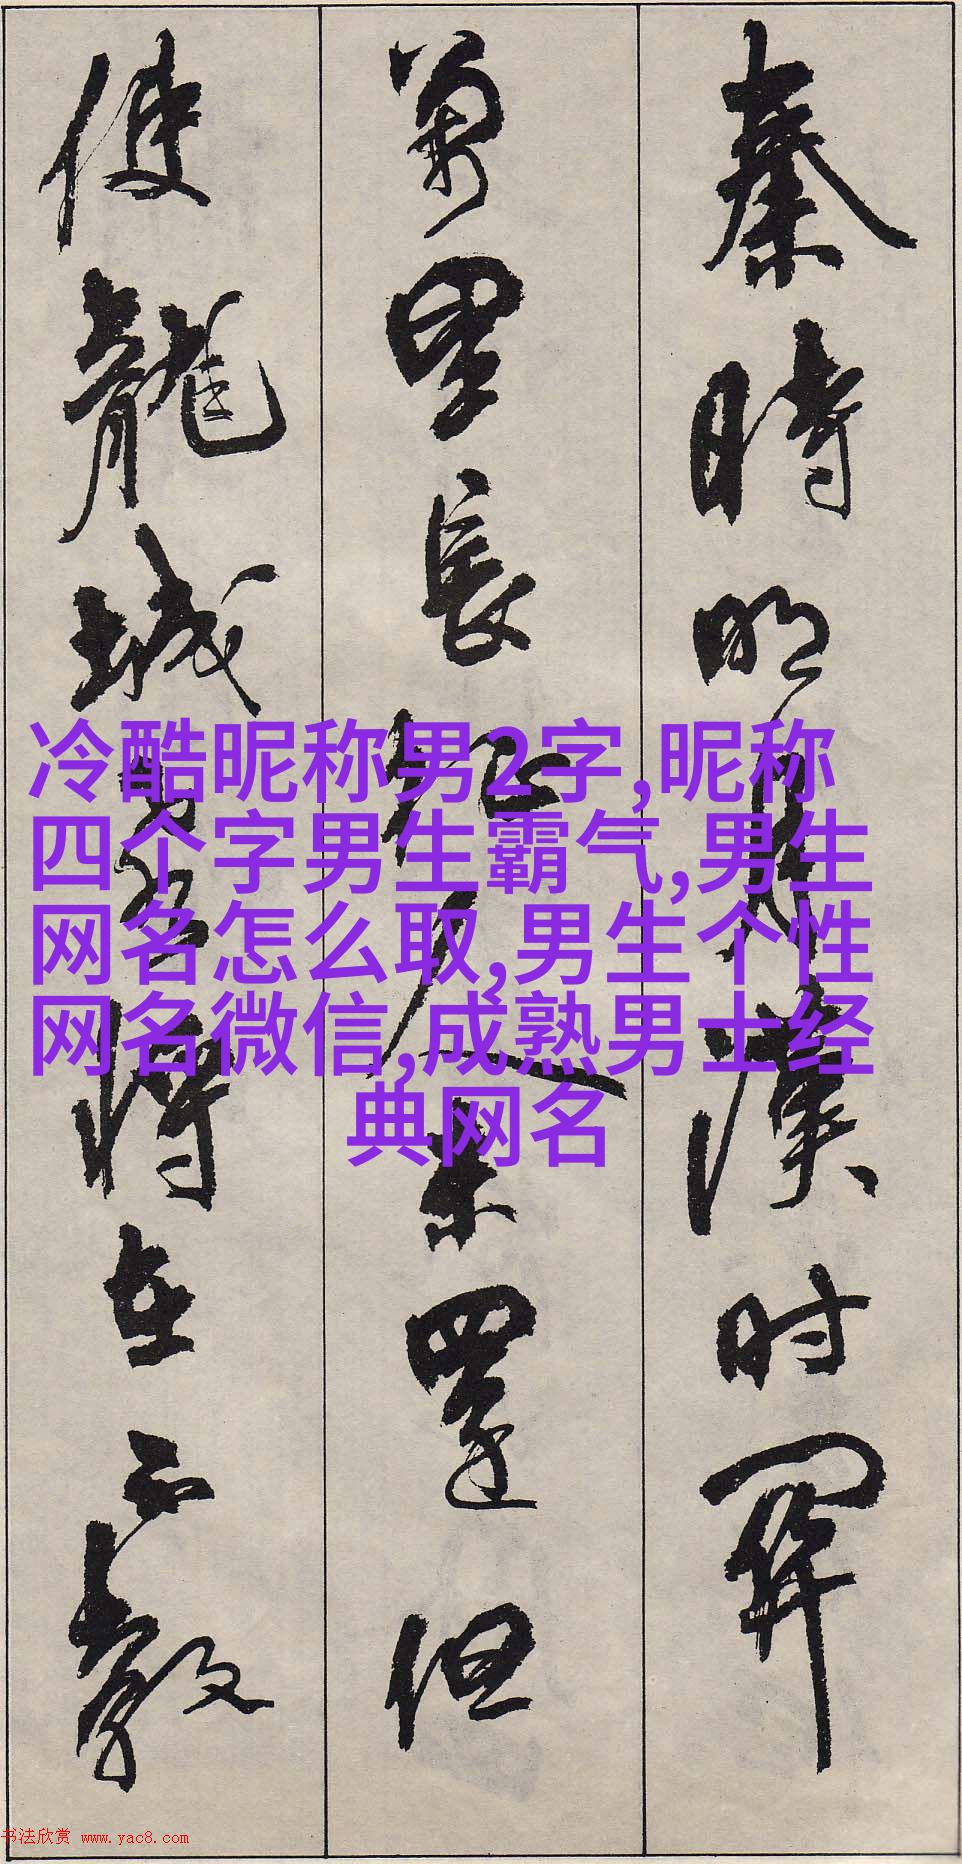 秦時明月漢时關
萬里長征人未還但
使龍城飛將在不教
冷酷昵称男2字,昵称
四个字男生霸气,男生
网名怎么取,男生个性
网名微信,成熟男士经
典网名
书法欣赏 www.yac8.com